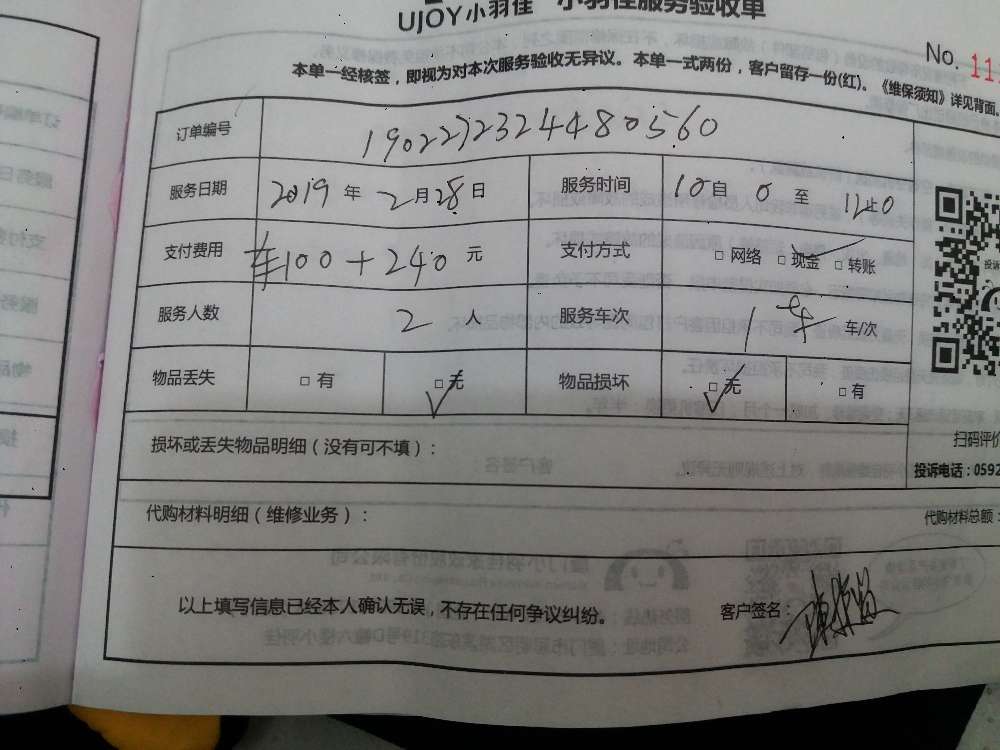 UJOY小羽佳 小羽佳服务验收单
No. 11
本单一经核签,即视为对本次服务验收无异议。本单一式两份,客户留存一份(红)。《维保须知》详见背面。
订单编号 1902272324480560
服务日期 2019 年 2 月 28 日 服务时间 10 自 0 至 12 止 0
支付费用 ¥100+240 元 支付方式 □ 网络 □ 现金 □ 转账
服务人数 2 人 服务车次 1 车/次
物品丢失 □ 有 □ 无 物品损坏 □ 无 □ 有
损坏或丢失物品明细(没有可不填):
扫码评价
投诉电话:0592
代购材料明细(维修业务):
代购材料总额:
以上填写信息已经本人确认无误,不存在任何争议纠纷。 客户签名: